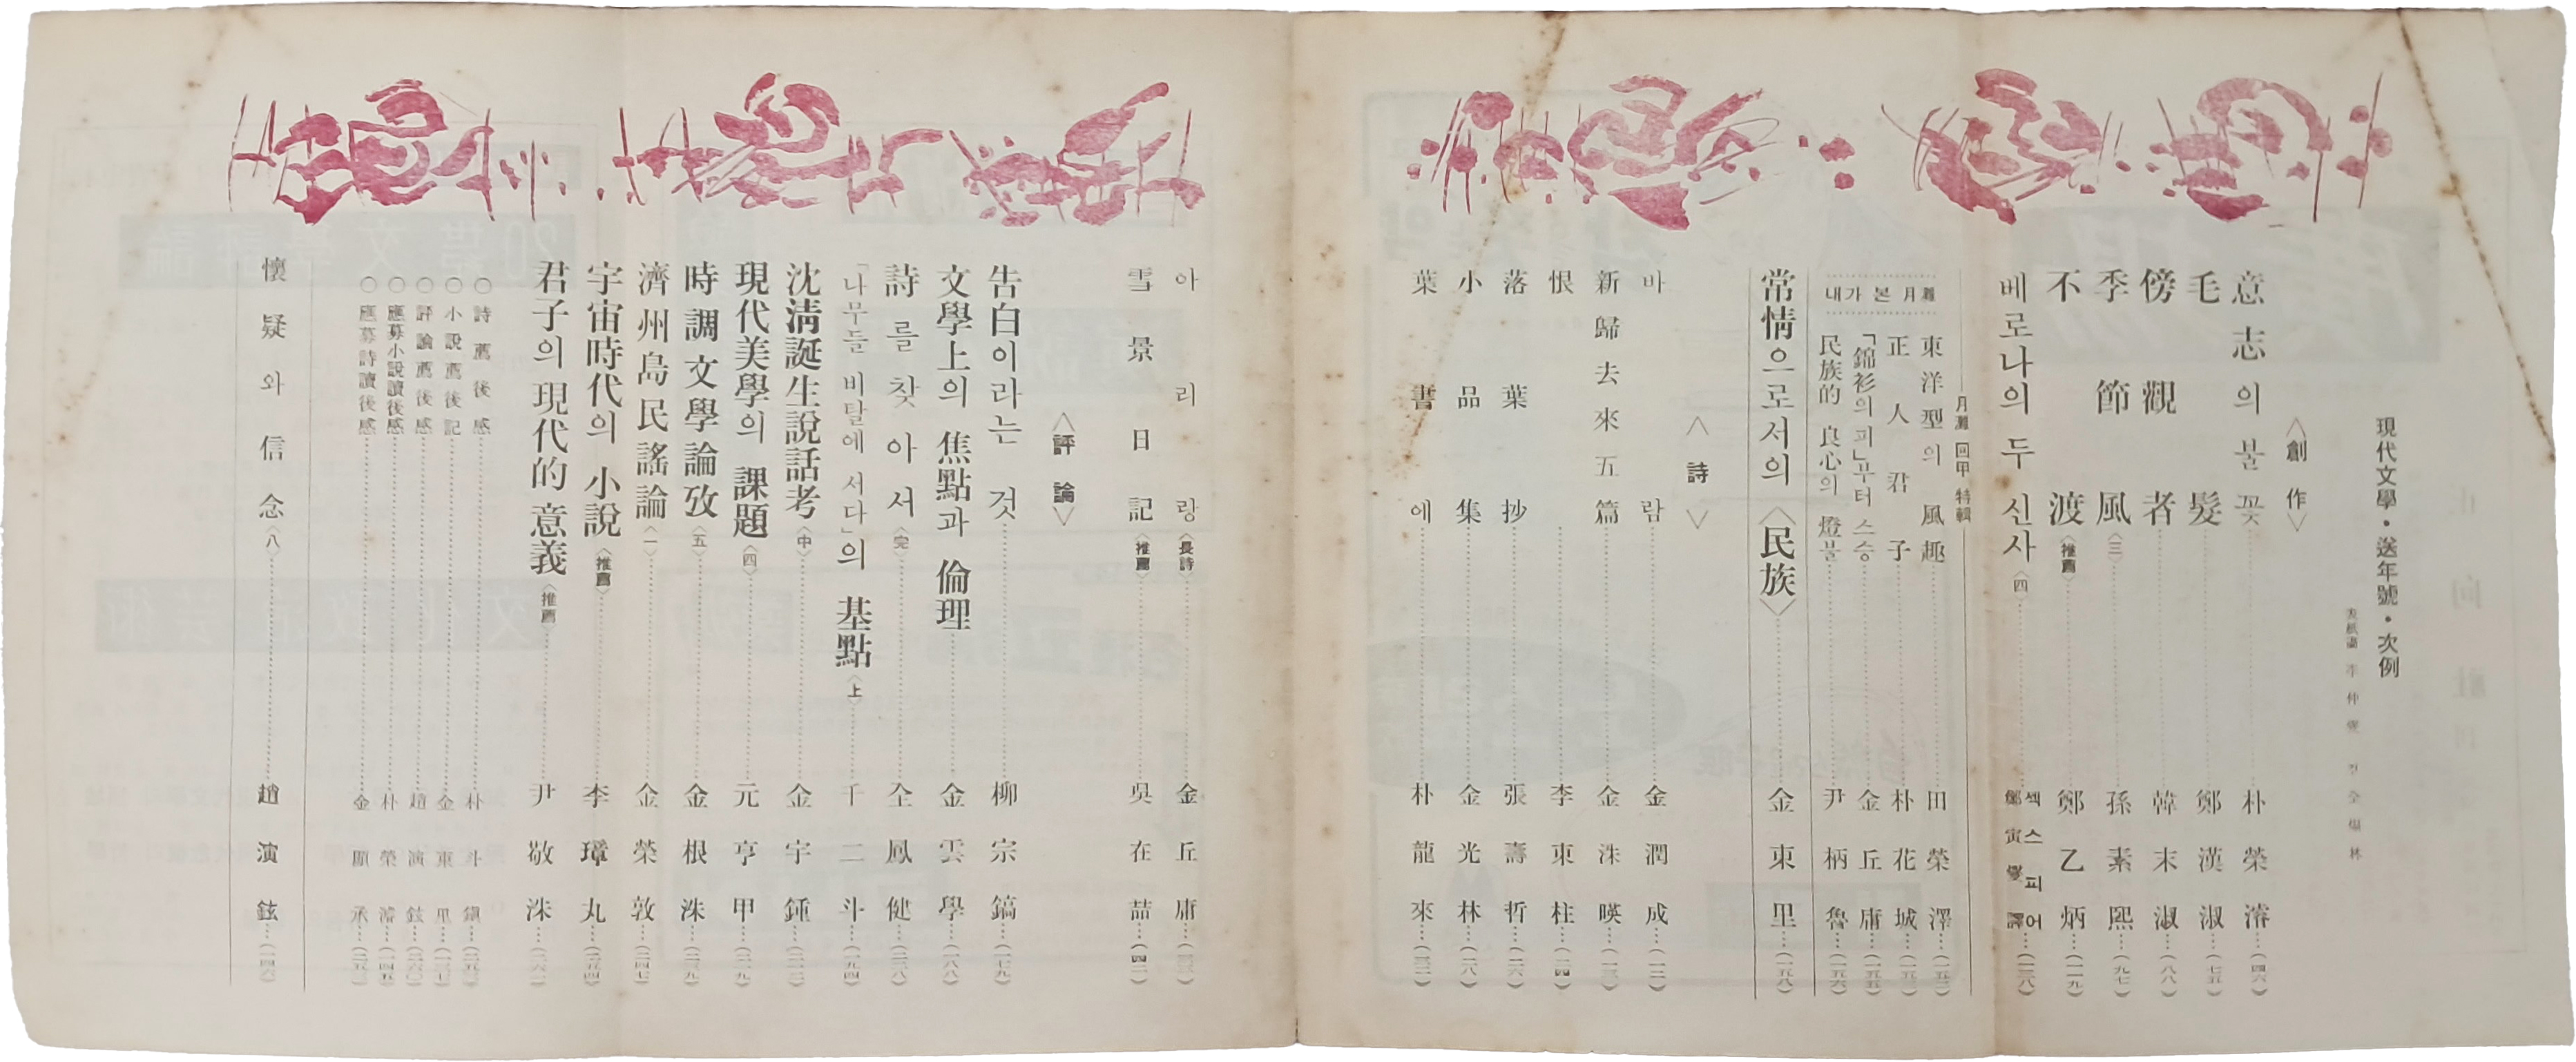 現代文學・送年號・次例
〈創作〉
意志의 불꽃 朴榮濬 (四六)
毛髮 鄭漢淑 (七五)
傍觀者 韓末淑 (八八)
季節風〈三〉 孫素熙 (九七)
不渡〈推薦〉 鄭乙炳 (一一九)
베로나의 두 신사〈四〉 섹스피어 鄭寅燮 譯
月灘 回甲 特輯
내가 본 月灘
東洋型의 風趣 田榮澤
正人君子 朴花城
「錦衫의 피」부터 스승 金丘庸
民族的 良心의 燈불 尹柄魯 (一五六)
常情으로서의〈民族〉 金東里 (一五八)
〈詩〉
바람 金潤成
新歸去來五篇 金洙暎
恨 李東柱
落葉抄 張壽哲
小品集 金光林
葉書에 朴龍來
아리랑〈長詩〉 金丘庸
雪景日記〈推薦〉 吳在喆
〈評論〉
告白이라는 것 柳宗鎬 (一七九)
文學上의 焦點과 倫理 金雲學 (一八八)
詩를 찾아서〈完〉 全鳳健
「나무들 비탈에 서다」의 基點〈上〉 千二斗 (一九四)
沈淸誕生說話考〈中〉 金宇鍾
現代美學의 課題〈四〉 元亨甲
時調文學論攷〈五〉 金根洙
濟州島民謠論〈一〉 金榮敦
宇宙時代의 小說〈推薦〉 李璋丸
君子의 現代的 意義〈推薦〉 尹敬洙
○詩薦後感 朴斗鎭
○小說薦後記 金東里
○評論薦後感 趙演鉉
○應募小說讀後感 朴榮濬
○應募詩讀後感 金顯承
懷疑와 信念〈八〉 趙演鉉